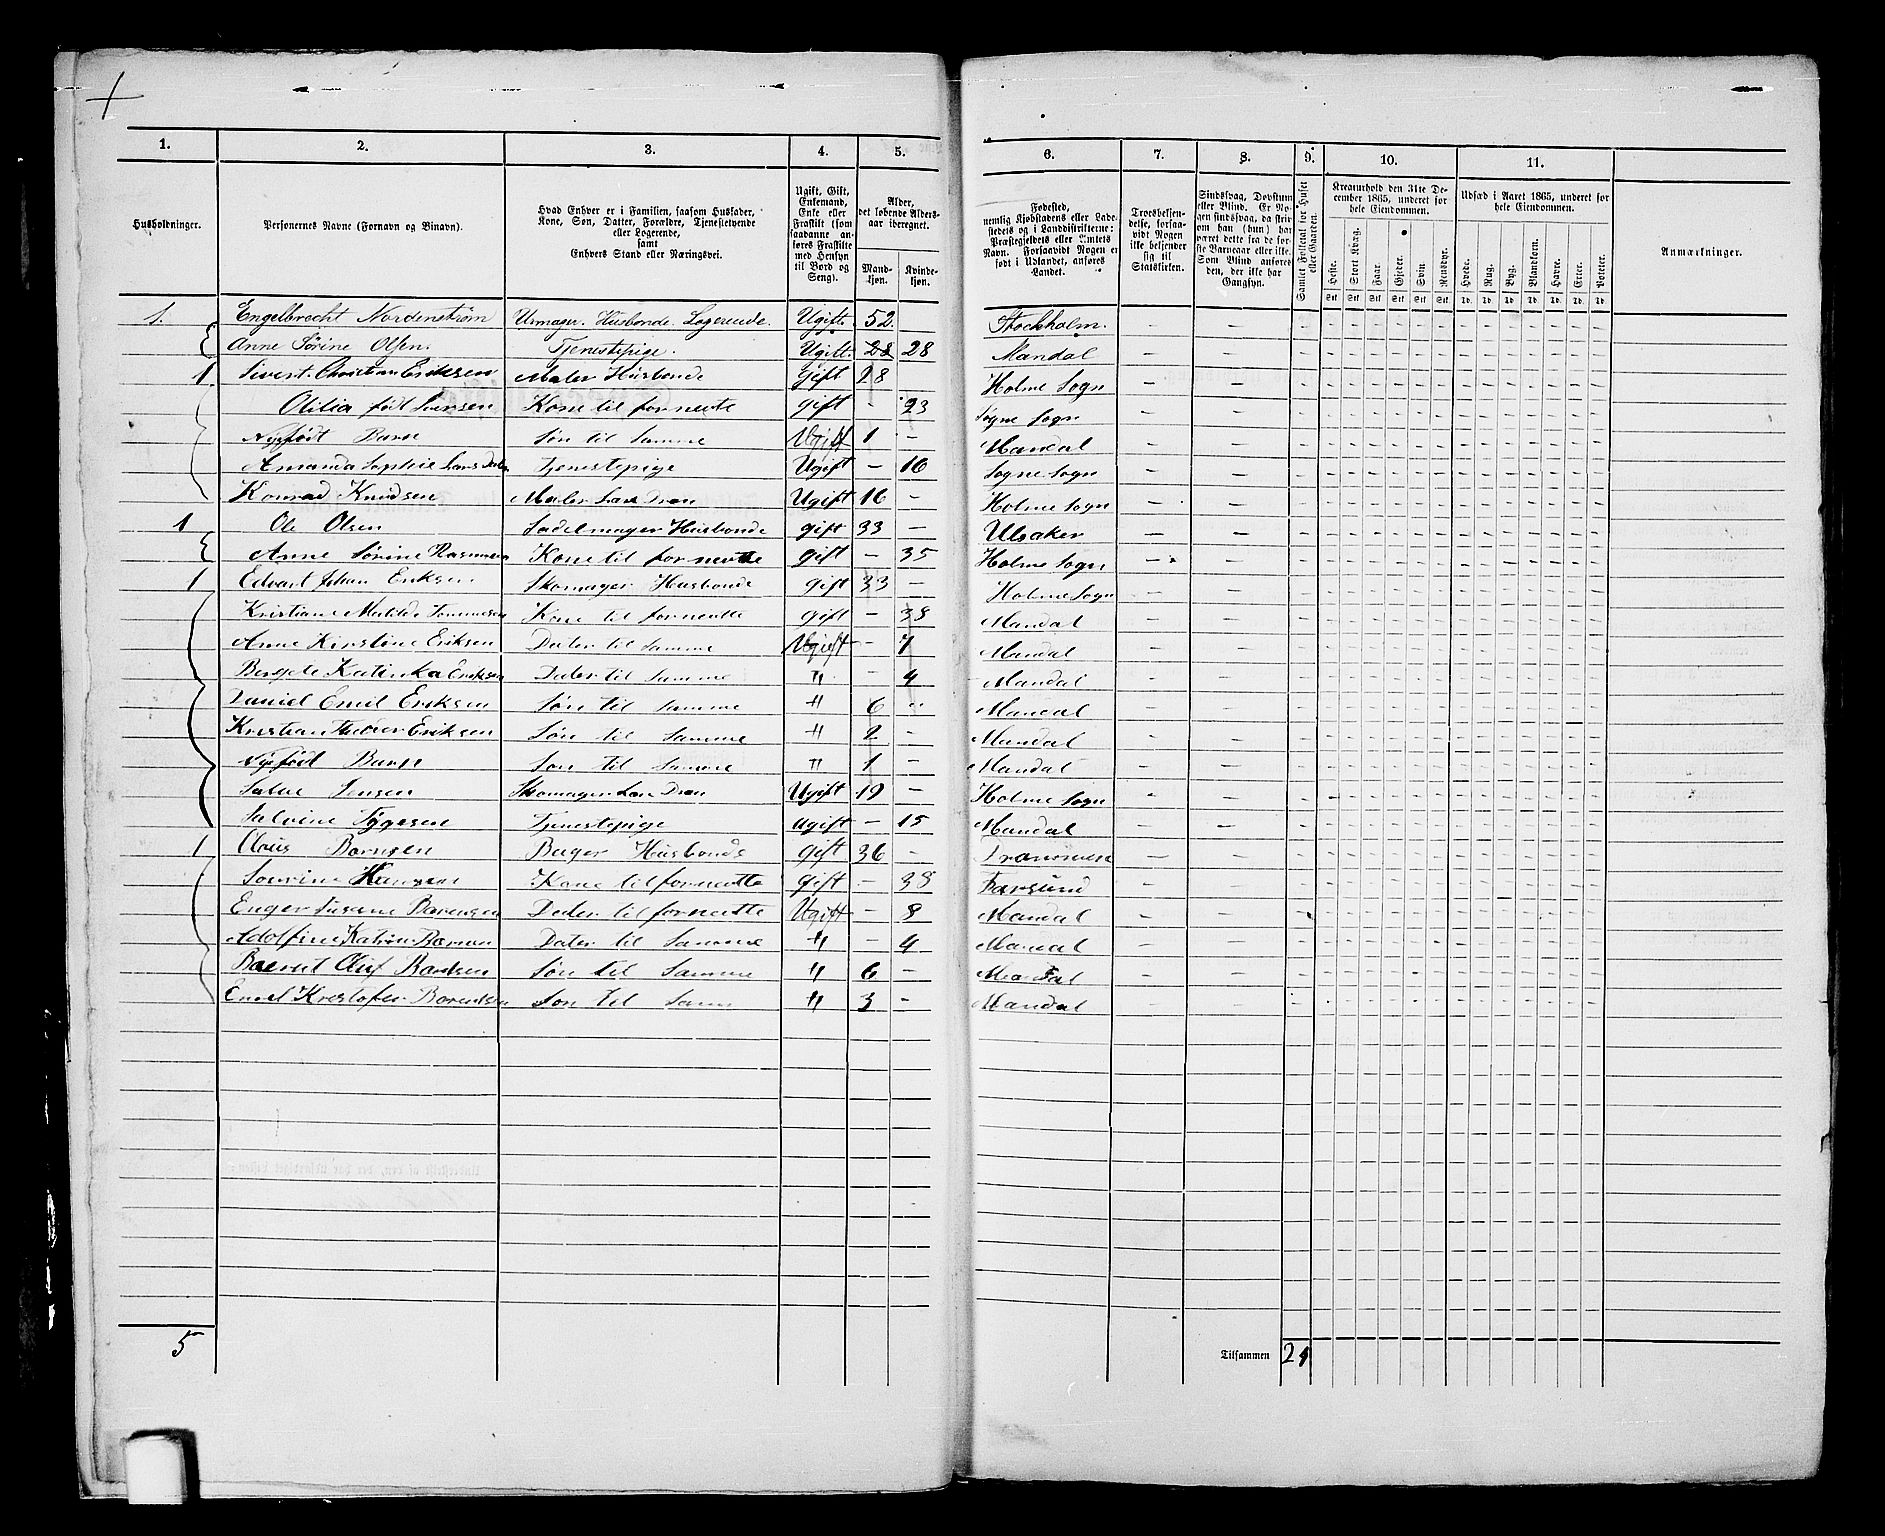 1. 2. 3. 4. 5. 6. 7. 8. 9. 10. 11.
Husholdninger.
Personernes Navne (Fornavn og Binavn).
Hvad Enhver er i Familien, saasom Husfader, Kone, Søn, Datter, Forældre, Tjenestetyende eller Logerende, samt Enhvers Stand eller Næringsvei.
Ugift, Gift, Enkemand, Enke eller Fraskilt (som saadanne anføres Fraskilte med Hensyn til Bord og Seng).
Alder, det løbende Alders-aar iberegnet.
Mand-kjøn. Kvinde-kjøn.
Fødested, nemlig Kjøbstadens eller Ladestedets og i Landdistrikterne: Præstegjeldets eller Amtets Navn. Forsaavidt Nogen er født i Udlandet, anføres Landet.
Troesbekjendelse, forsaavidt Nogen ikke bekjender sig til Statskirken.
Sindssvag, Døvstum eller Blind. Er Nogen sindssvag, da skrives om han (hun) har været dette fra de første Barneaar eller ikke. Som Blind anføres den, der ikke har Gangsyn.
Samlet Folketal for Huset eller Gaarden.
Kreaturhold den 31te December 1865, underet for hele Eiendommen.
Heste. Stort Kvæg. Faar. Gjeder. Svin. Rensdyr.
Udsæd i Aaret 1865, underet for hele Eiendommen.
Hvede. Rug. Byg. Blandkorn. Havre. Erter. Poteter.
Anmærkninger.
Stk Stk Stk Stk Stk Stk Td. Td. Td. Td. Td. Td. Td.
1. Engelbrecht Nordenstrøm Urmager. Husbonde. Logerende. Ugift. 52. Stockholm.
Anne Sørine Olsen. Tjenestepige. Ugift. 28 28 Mandal
1 Sivert. Christian Eriksen Maler Husbonde gift 28 Holme Sogn
Olilia født Kone til fornevte gift - 23 Søgne Sogn
Nyfødt Barn Søn til Samme Ugift 1 - Mandal
Amanda Sophie Lars Dater Tjenestepige Ugift - 16 Sogne Sogn
Konrad Knudsen Maler Lære Dren Ugift 16 - Holme Sogn
1 Ole Olsen Sadelmager Husbonde gift 33 - Ulsaker
Anne Sørine Rasmusen Kone til fornevtte gift - 35 Holme Sogn
1 Edvart Johan Eriksen Skomager Husbonde gift 33 - Holme Sogn
Kristiane Matilde Kone til fornevtte gift - 38 Mandal
Anne Kirstine Eriksen Dater til Samme Ugift - 7 Mandal
Bergete Katinka Eriksen Dater til Samme " - 4 Mandal
Daniel Emil Eriksen Søn til Samme " 6 - Mandal
Kristian Eriksen Søn til Samme " 2 - Mandal
Nyfød Barn Søn til Samme " 1 - Mandal
Salve Jensen Skomager Lære Dren Ugift 19 - Holme Sogn
Salvine Tygesen Tjenestepige Ugift - 15 Mandal
1 Claus Bernsen Bager Husbonde gift 36 -
Sourine Hansen Kone til fornevtte gift - 38 Farsund
Enger Susane Barensen Dater til fornevtte Ugift - 8 Mandal
Adolfine Katrine Dater til Samme " - 4 Mandal
Olus Søn til Samme " 6 - Mandal
Emel Krestofer Barendsen Søn til Samm " 3 - Mandal
5 Tilsammen 24